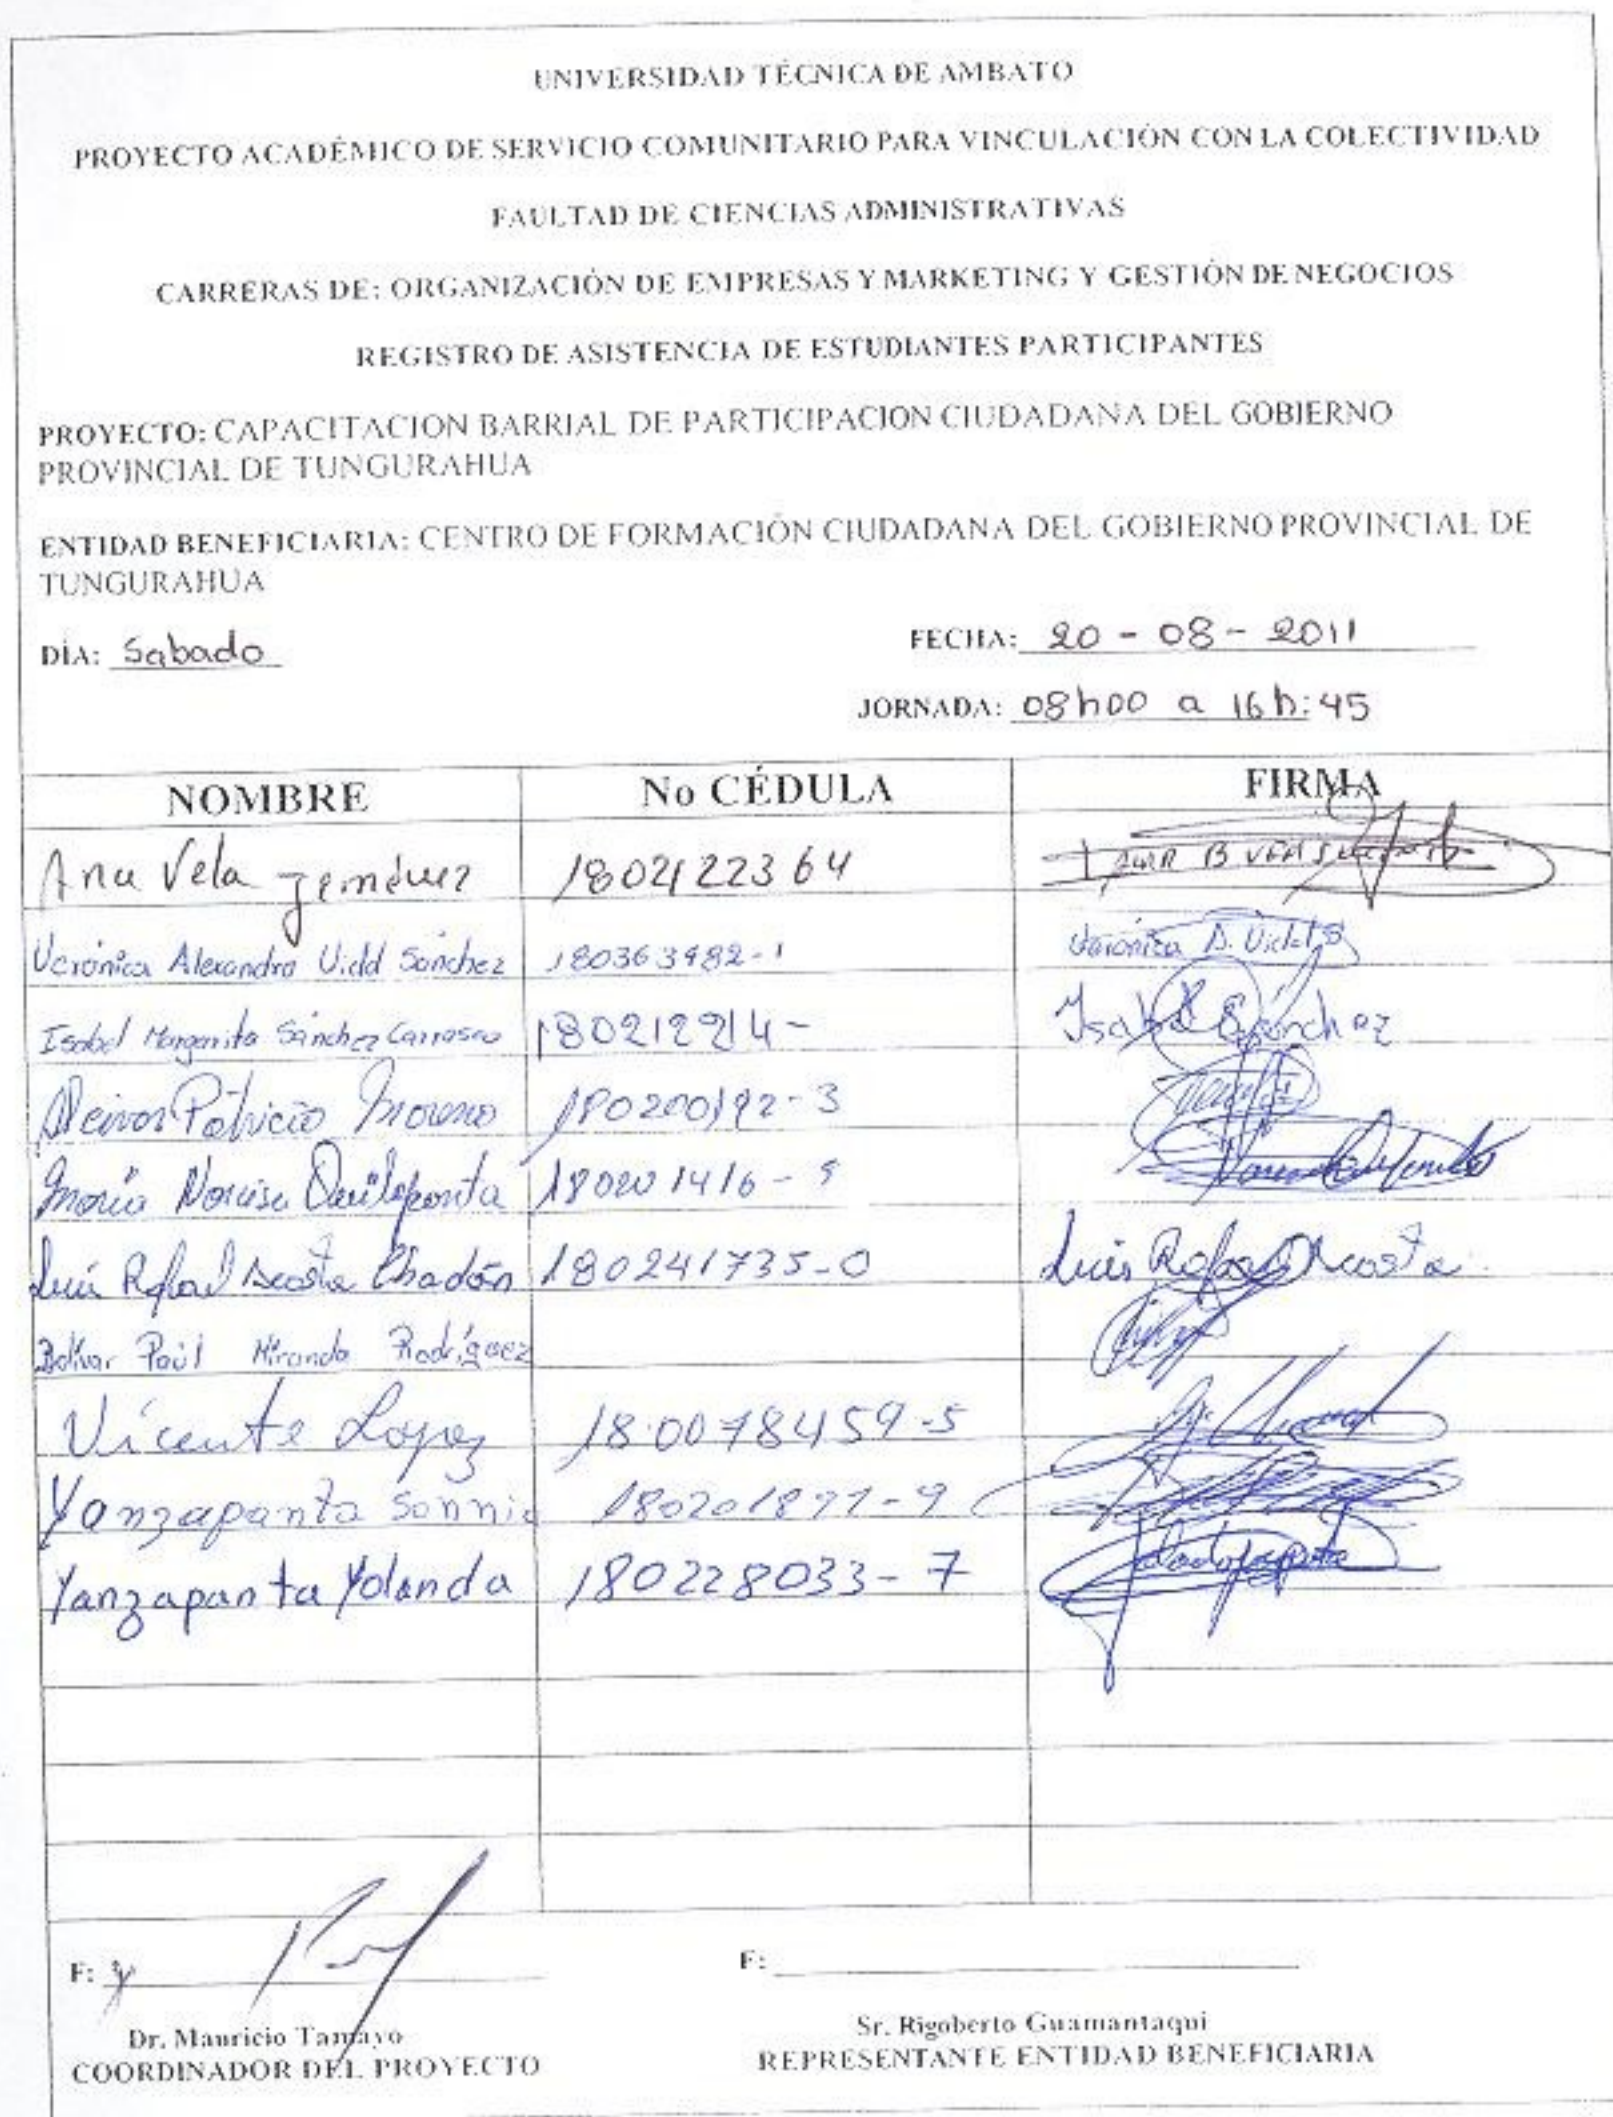 UNIVERSIDAD TÉCNICA DE AMBATO
PROYECTO ACADÉMICO DE SERVICIO COMUNITARIO PARA VINCULACIÓN CON LA COLECTIVIDAD
FAULTAD DE CIENCIAS ADMINISTRATIVAS
CARRERAS DE: ORGANIZACIÓN DE EMPRESAS Y MARKETING Y GESTIÓN DE NEGOCIOS
REGISTRO DE ASISTENCIA DE ESTUDIANTES PARTICIPANTES
PROYECTO: CAPACITACION BARRIAL DE PARTICIPACION CIUDADANA DEL GOBIERNO
PROVINCIAL DE TUNGURAHUA
ENTIDAD BENEFICIARIA: CENTRO DE FORMACIÓN CIUDADANA DEL GOBIERNO PROVINCIAL DE
TUNGURAHUA
DÍA: Sabado FECHA: 20 - 08 - 2011
JORNADA: 08h00 a 16h:45
NOMBRE No CÉDULA FIRMA
Ana Vela
Verónica Alexandra Vidal Sánchez Verónica A. Vidal S
Isabel Margarita Sánchez Carrasco Isabel Sánchez
Patricio Moreno 180200192-3
María Narcisa
Luis Rafael Acosta 180241735-0 Luis Rafael Acosta
Bolívar Paúl Miranda Rodríguez
Vicente Lopez 18.0078459-5
Yanzapanta Sonnia
Yanzapanta Yolanda 180228033-7
F: F:
Dr. Mauricio Tamayo Sr. Rigoberto Guamantaqui
COORDINADOR DEL PROYECTO REPRESENTANTE ENTIDAD BENEFICIARIA